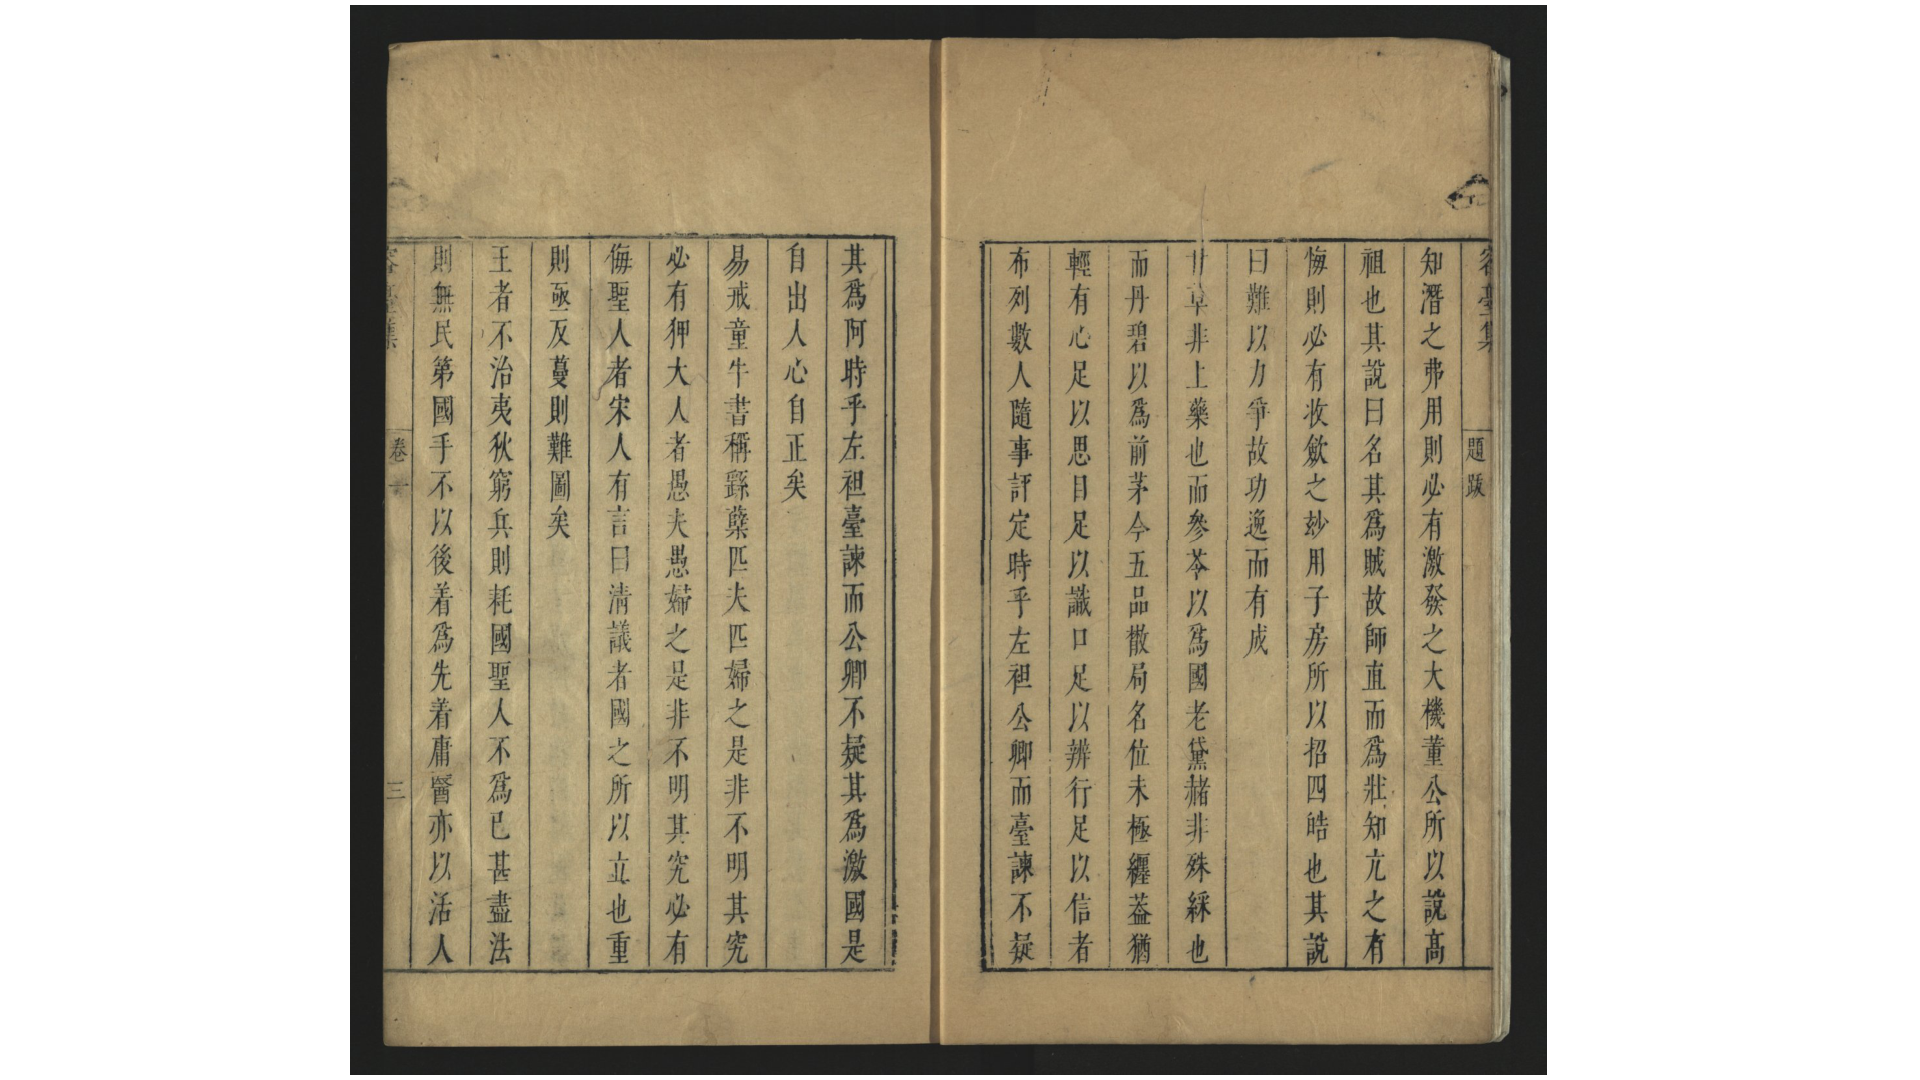 容臺集
題跋
知潛之弗用則必有激發之大機董公所以說髙
祖也其說曰名其爲賊故師直而爲壯知亢之有
悔則必有收斂之玅用子房所以招四皓也其說
曰難以力爭故功逸而有成
甘草非上藥也而參苓以爲國老黛赭非殊綵也
而丹碧以爲前茅今五品散局名位未極纏葢猶
輕有心足以思目足以識口足以辨行足以信者
布列數人隨事評定時乎左袒公卿而臺諫不疑
其爲阿時乎左袒臺諫而公卿不疑其爲激國是
自出人心自正矣
易戒童牛書稱繇蘖匹夫匹婦之是非不明其究
必有狎大人者愚夫愚婦之是非不明其究必有
侮聖人者宋人有言曰清議者國之所以立也重
則亟反蔓則難圖矣
王者不治夷狄窮兵則耗國聖人不爲已甚盡法
則無民第國手不以後着爲先着庸醫亦以活人
容臺集
卷一
三